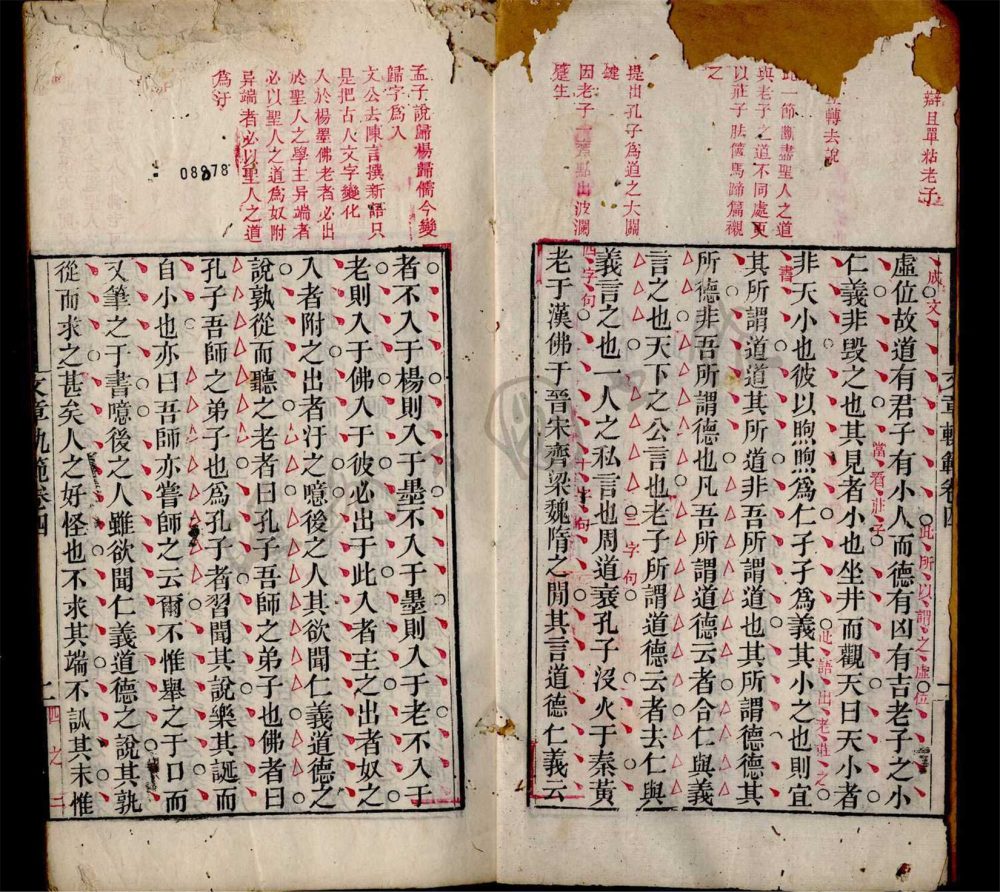 辯且單粘老子
轉去說
一節斷盡聖人之道
與老子之道不同處更
以莊子胠篋馬蹄篇襯
之
提出孔子為道之大關
鍵
因老子點出波瀾
蹙生
文章軌範卷四
此所以謂之虛位
成文
虛位故道有君子有小人而德有凶有吉老子之小
當看莊子
仁義非毀之也其見者小也坐井而觀天曰天小者
此語出老莊之
書
非天小也彼以煦煦為仁孑孑為義其小之也則宜
其所謂道道其所道非吾所謂道也其所謂德德其
所德非吾所謂德也凡吾所謂道德云者合仁與義
言之也天下之公言也老子所謂道德云者去仁與
三字句
義言之也一人之私言也周道衰孔子沒火于秦黃
四字句
十字句
老于漢佛于晉宋齊梁魏隋之間其言道德仁義云
孟子說歸楊歸儒今變
歸字為入
文公去陳言撰新語只
是把古人文字變化
入於楊墨佛老者必出
於聖人之學主异端者
必以聖人之道為奴附
异端者必以聖人之道
為汙
08878
者不入于楊則入于墨不入于墨則入于老不入于
老則入于佛入于彼必出于此入者主之出者奴之
入者附之出者汙之噫後之人其欲聞仁義道德之
說孰從而聽之老者曰孔子吾師之弟子也佛者曰
孔子吾師之弟子也為孔子者習聞其說樂其誕而
自小也亦曰吾師亦嘗師之云爾不惟舉之于口而
又筆之于書噫後之人雖欲聞仁義道德之說其孰
從而求之甚矣人之好怪也不求其端不訊其末惟
文章軌範卷四
二
四之二